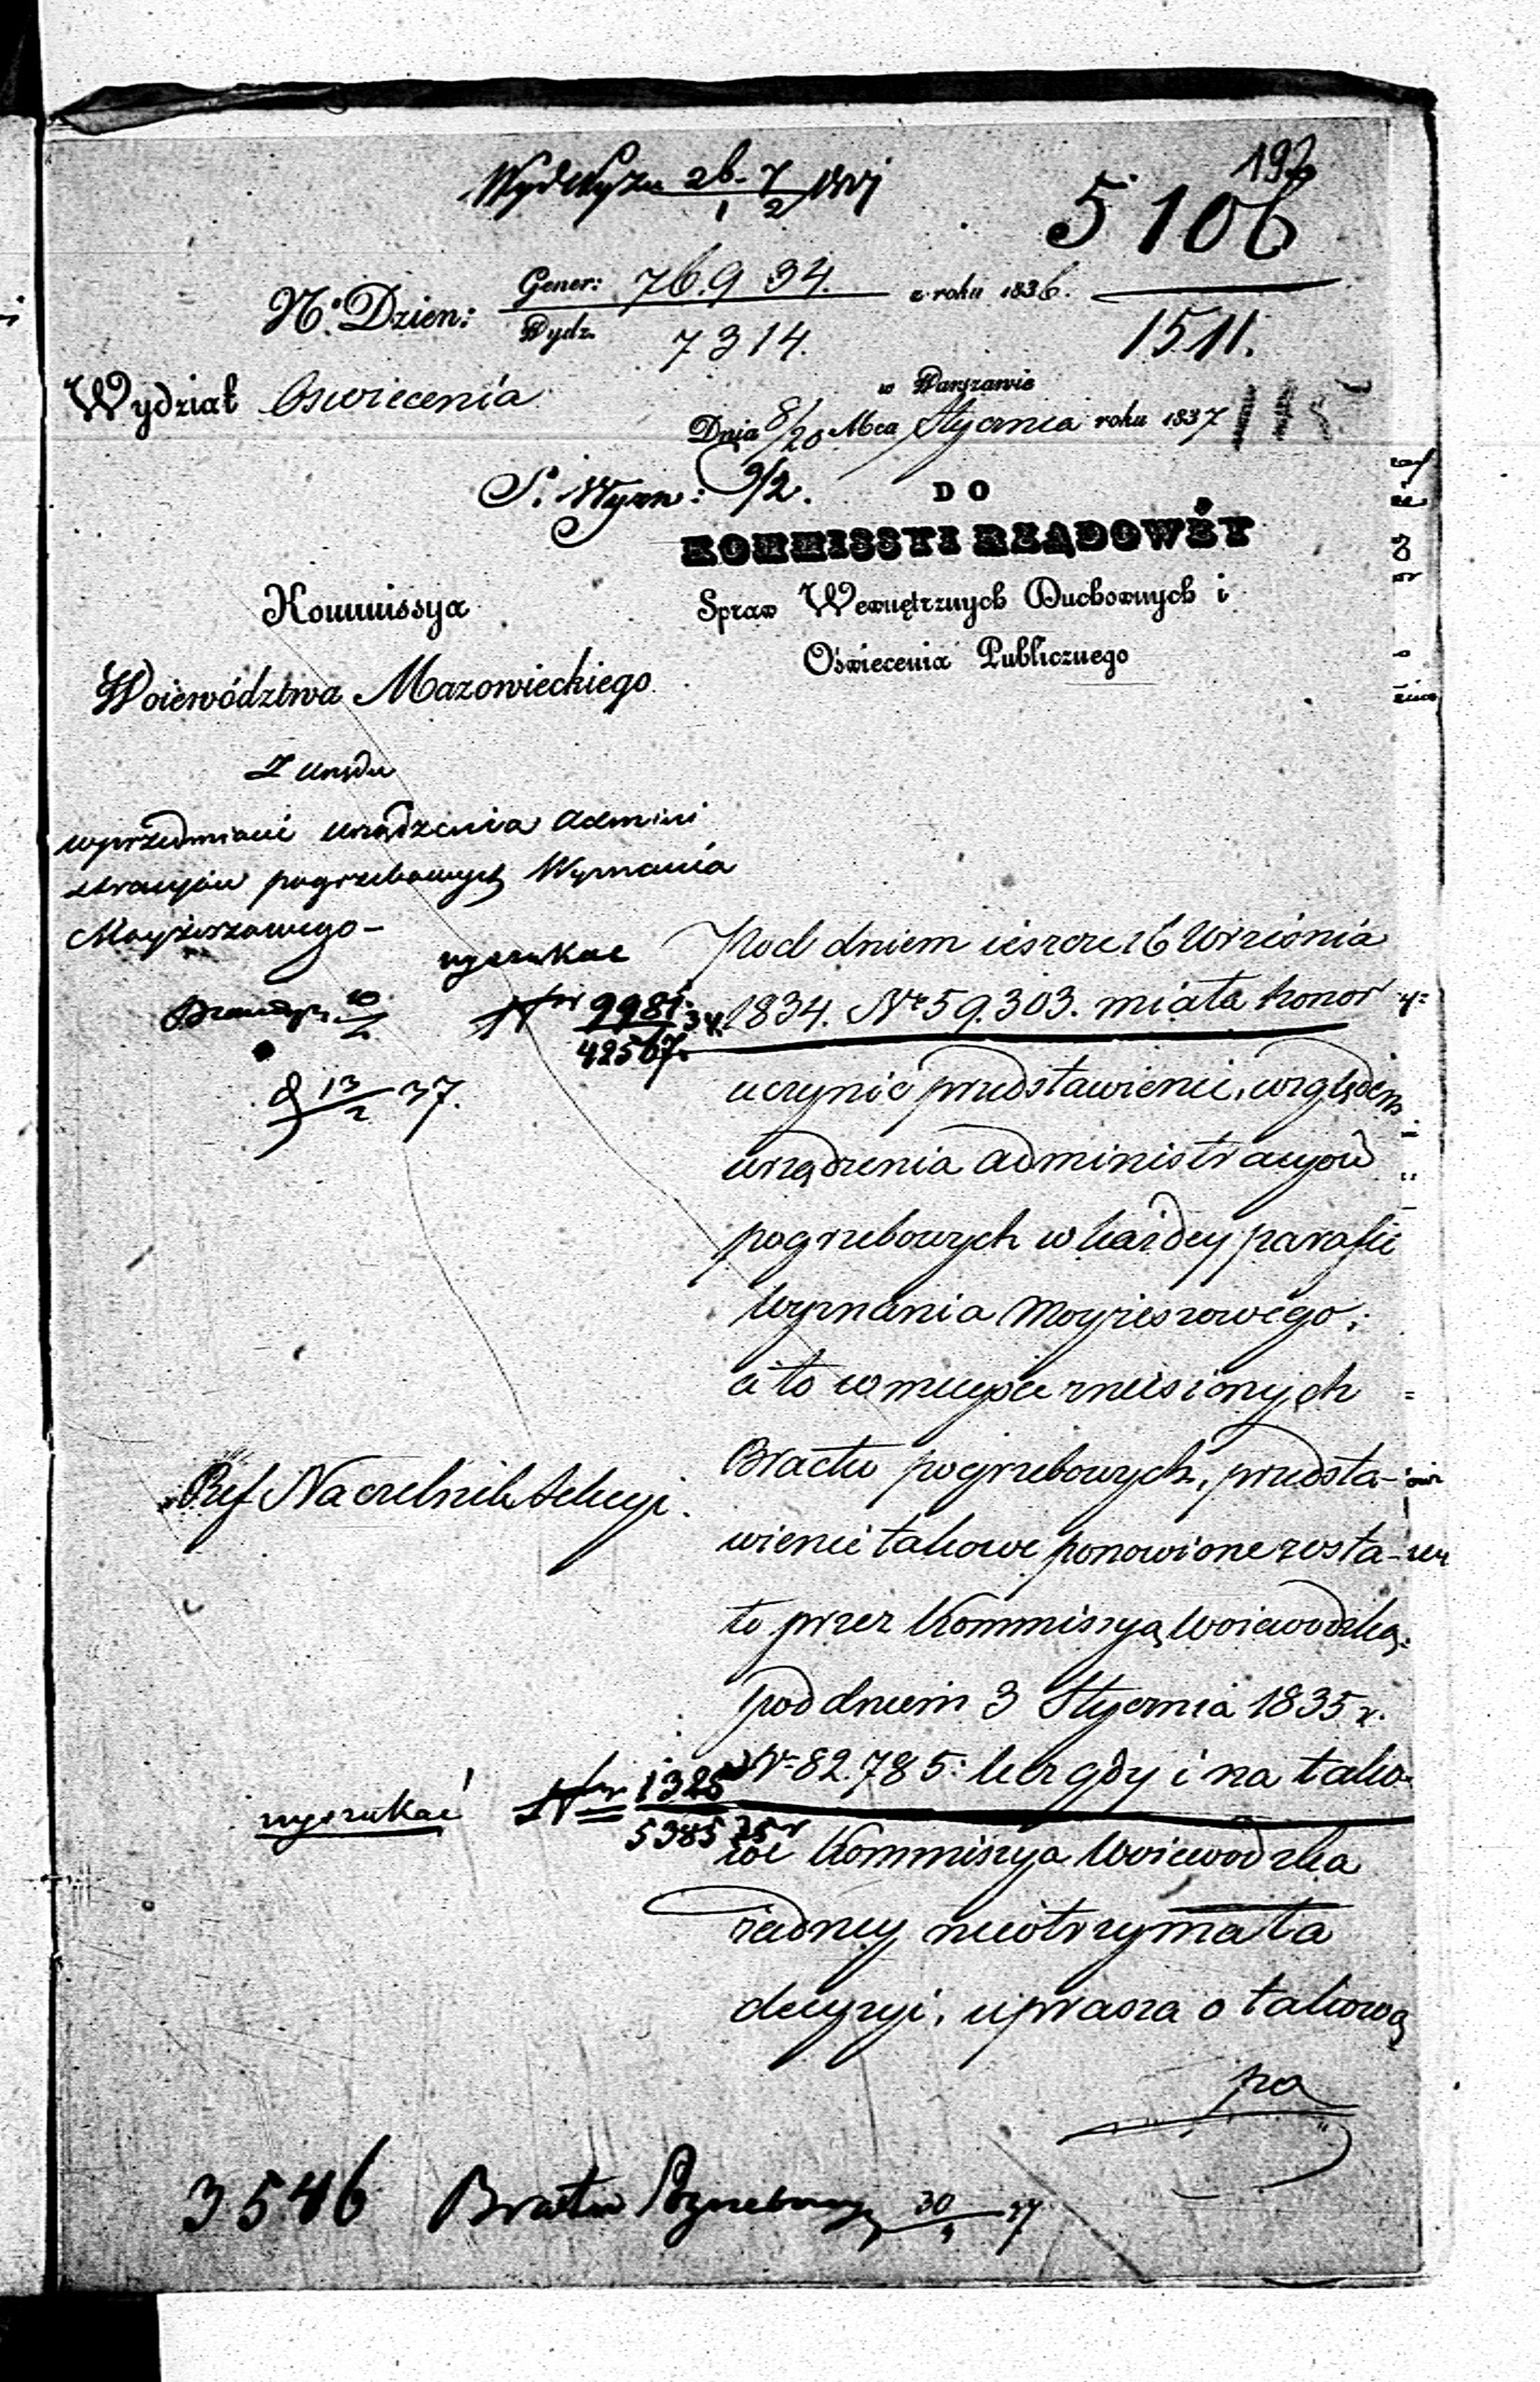 192
5106
1511.
Nº Dzien: Gener: 76.934. z roku 1836.
Wydz. 7314.
Wydział Oswiecenia
w Warszawie
Dnia 8/20 Mca Stycznia roku 1837
S. Wyzn: 9/2.
DO
KOMMISSYI RZĄDOWÉY
Spraw Wewnętrznych Duchownych i
Oświecenia Publicznego
Kommissya
Woiewództwa Mazowieckiego
Z Urzędu
wprzedmiocie urządzenia Admini
stracyów pogrzebowych Wyznania
Moyżeszowego-
wyszukac
Nr 9981/42567 34.
13/2 37.
Pod dniem ieszcze 16 Września
1834. Nr 59.303. miała honor
uczynic przedstawienie, względem
urządzenia administracyow
pogrzebowych w każdey parafii
Wyznania Moyżeszowego;
a to w mieysce zniesionych
Bractw pogrzebowych, przedsta-
wienie takowe ponowione zosta-
ło przez Kommissyą Woiewodzką.
pod dniem 3 Stycznia 1835 r.
Nr 82.785: lecz gdy i na tako-
we Kommissya Woiewodzka
żadney nieotrzymała
decyzyi, uprasza o takową
po
Ref Naczelnik Sekcyi.
wyszukać Nr 1325/5385 35r
3546 Bractw Pogrzebowy